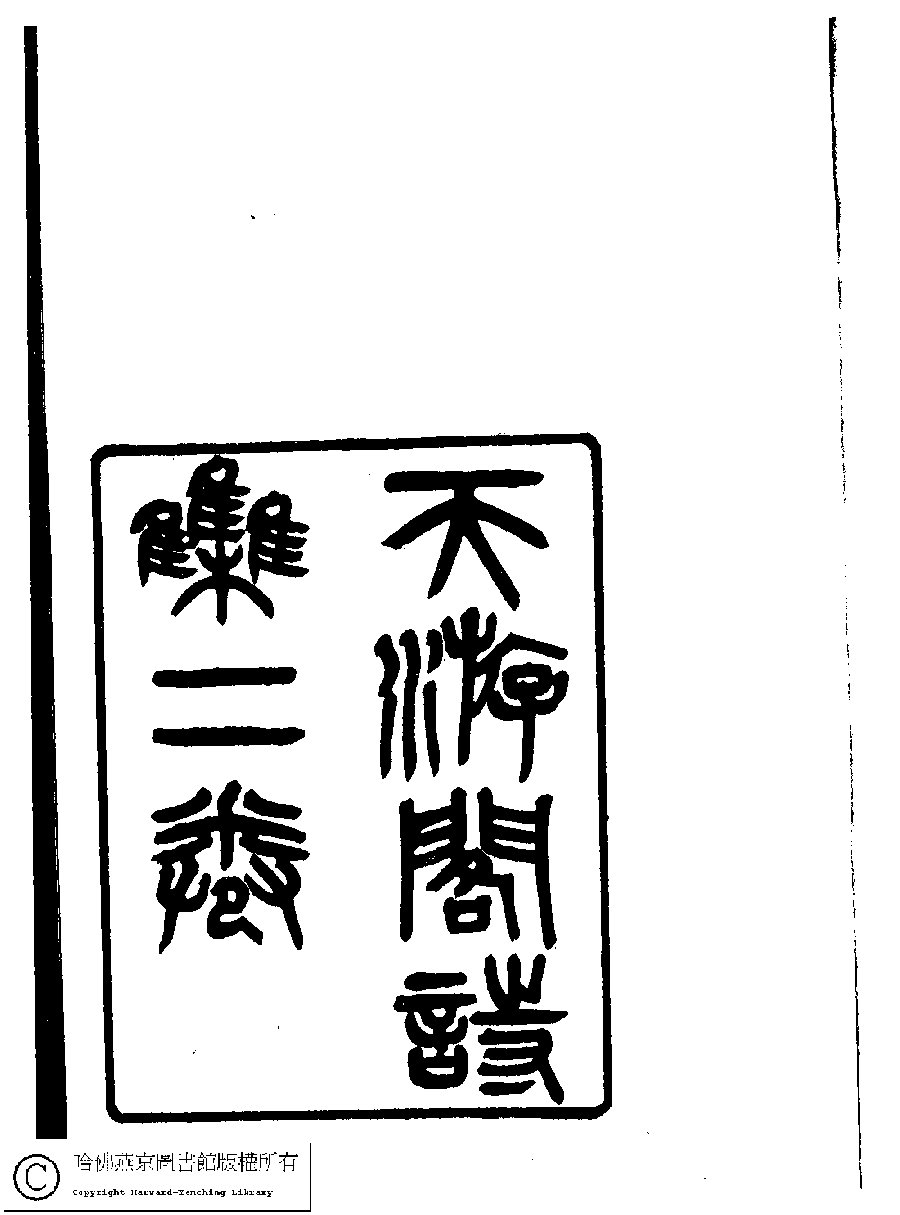 天游閣詩
集二卷
哈佛燕京圖書館版權所有
Copyright Harvard-Yenching Library